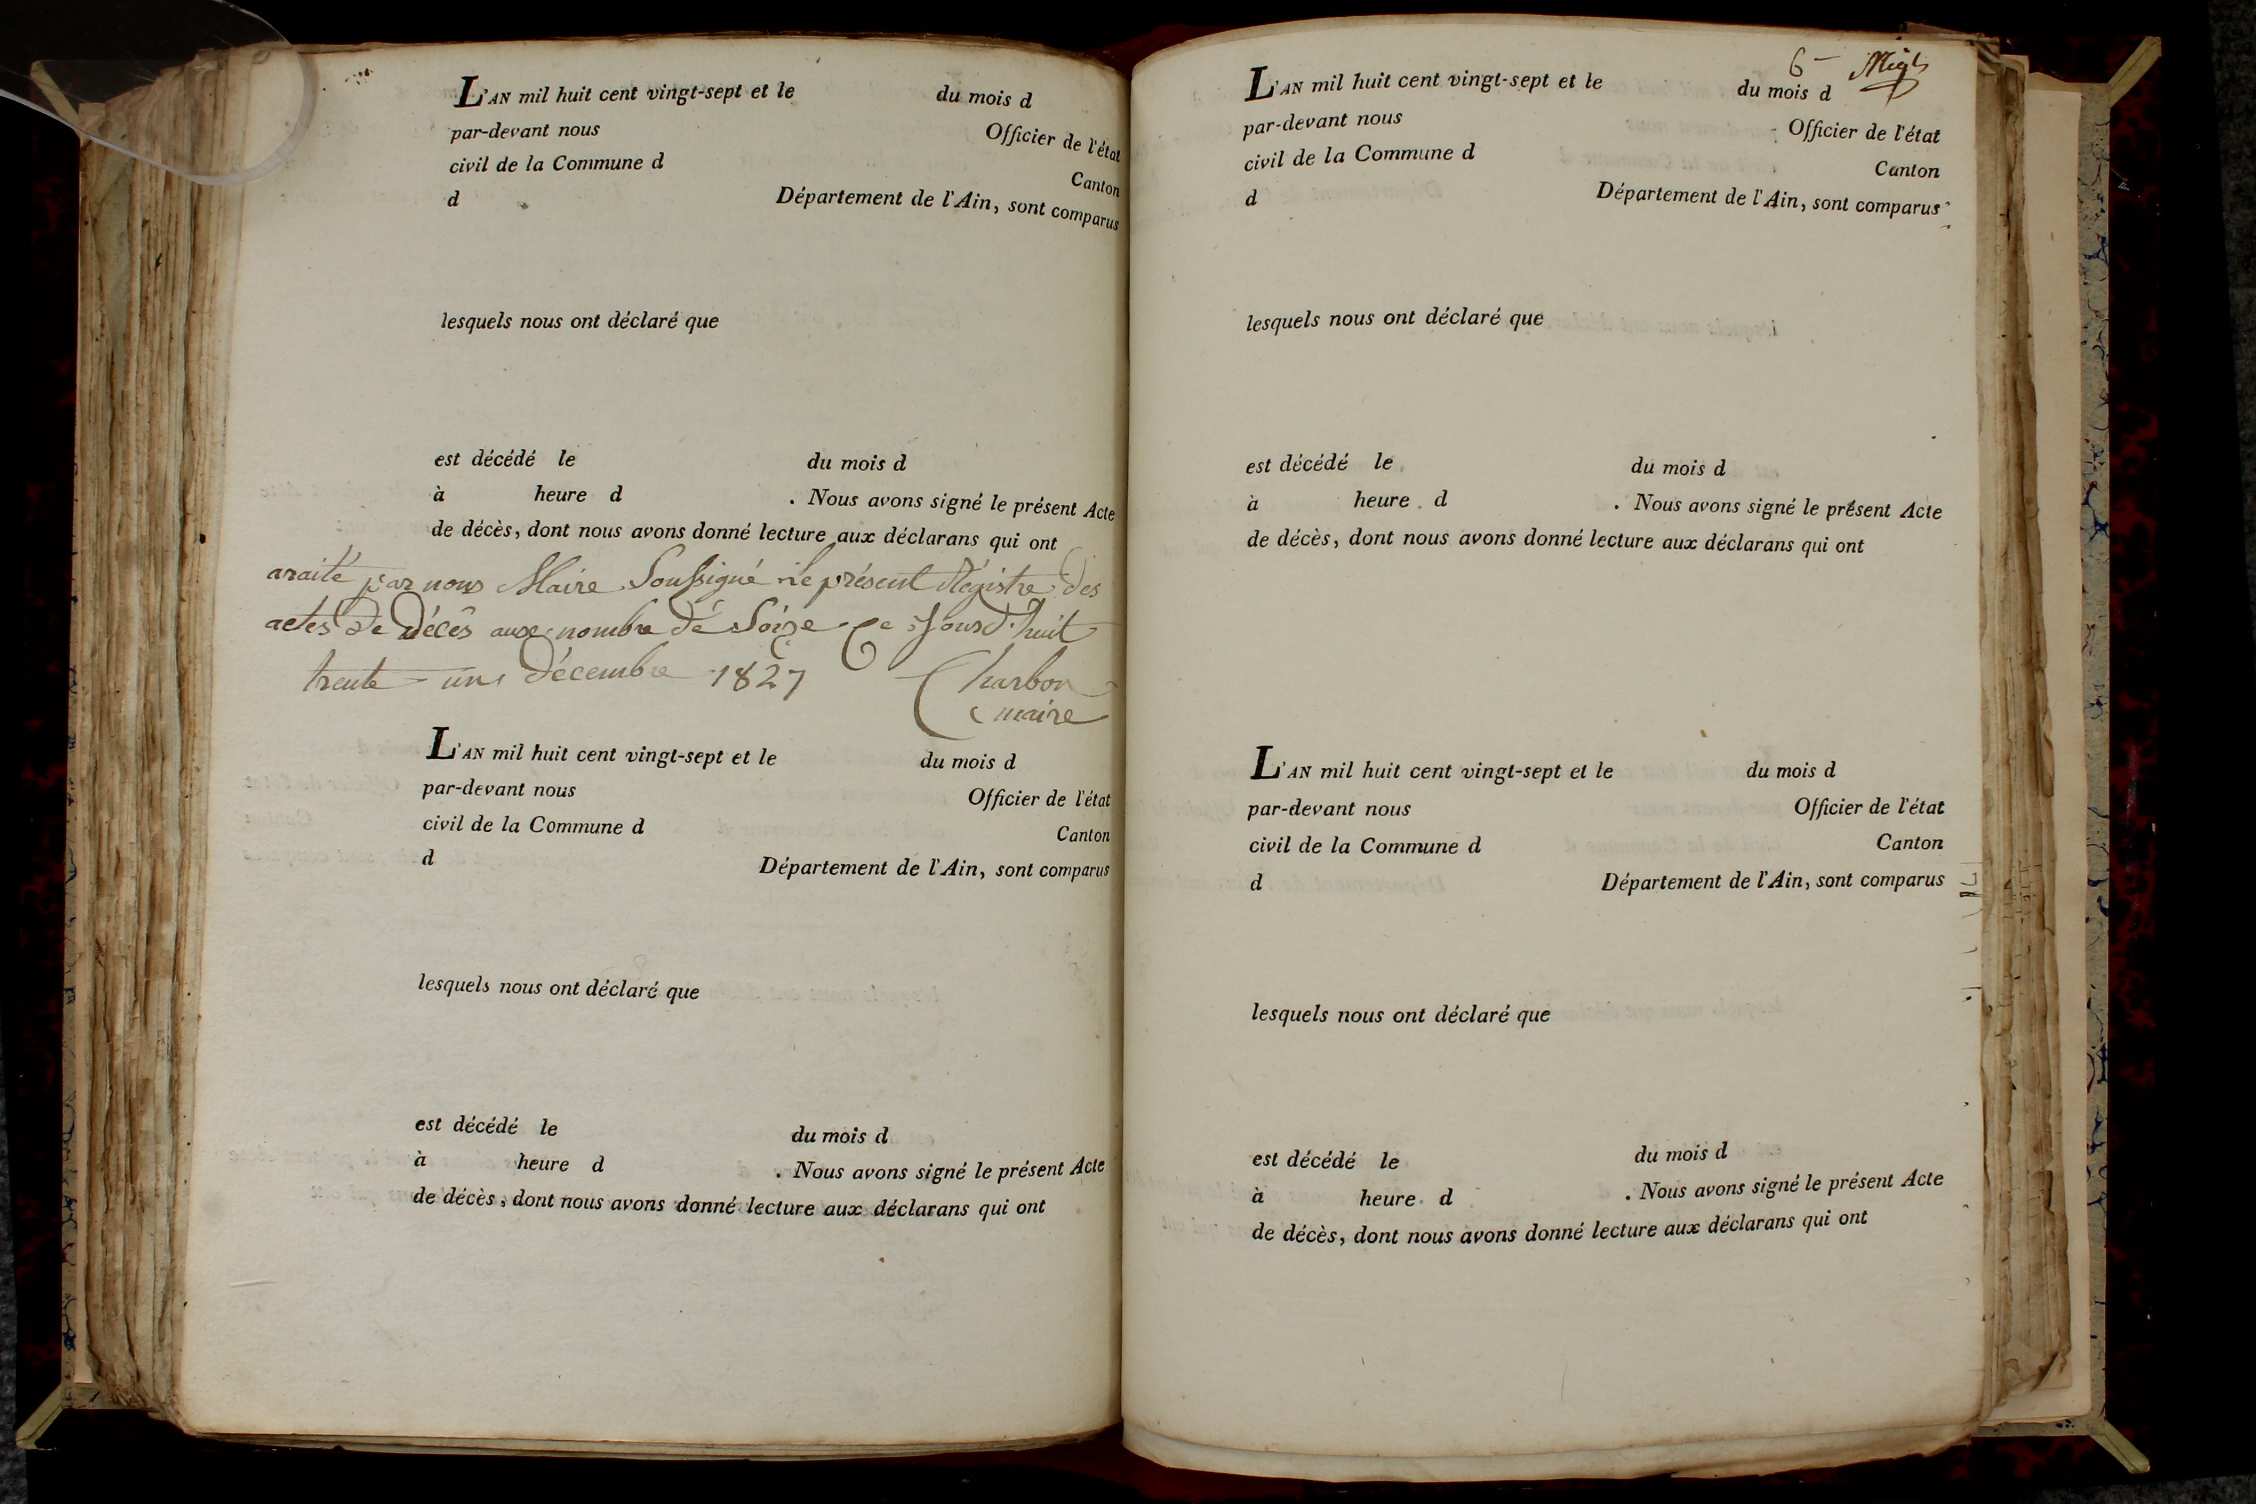 L'AN mil huit cent vingt-sept et le du mois d
par-devant nous Officier de l'état
civil de la Commune d Canton
d Département de l'Ain, sont comparus
lesquels nous ont déclaré que
est décédé le du mois d
à heure d . Nous avons signé le présent Acte
de décès, dont nous avons donné lecture aux déclarans qui ont
araité par nous Maire Soussigné le présent Régistre des
actes De Décês aux nombre dé Soize Ce Jourd'huit
trente un Décembre 1827 Charbon
maire
L'AN mil huit cent vingt-sept et le du mois d
par-devant nous Officier de l'état
civil de la Commune d Canton
d Département de l'Ain, sont comparus
lesquels nous ont déclaré que
est décédé le du mois d
à heure d . Nous avons signé le présent Acte
de décès, dont nous avons donné lecture aux déclarans qui ont
6
L'AN mil huit cent vingt-sept et le du mois d
par-devant nous Officier de l'état
civil de la Commune d Canton
d Département de l'Ain, sont comparus
lesquels nous ont déclaré que
est décédé le du mois d
à heure d . Nous avons signé le présent Acte
de décès, dont nous avons donné lecture aux déclarans qui ont
L'AN mil huit cent vingt-sept et le du mois d
par-devant nous Officier de l'état
civil de la Commune d Canton
d Département de l'Ain, sont comparus
lesquels nous ont déclaré que
est décédé le du mois d
à heure d . Nous avons signé le présent Acte
de décès, dont nous avons donné lecture aux déclarans qui ont